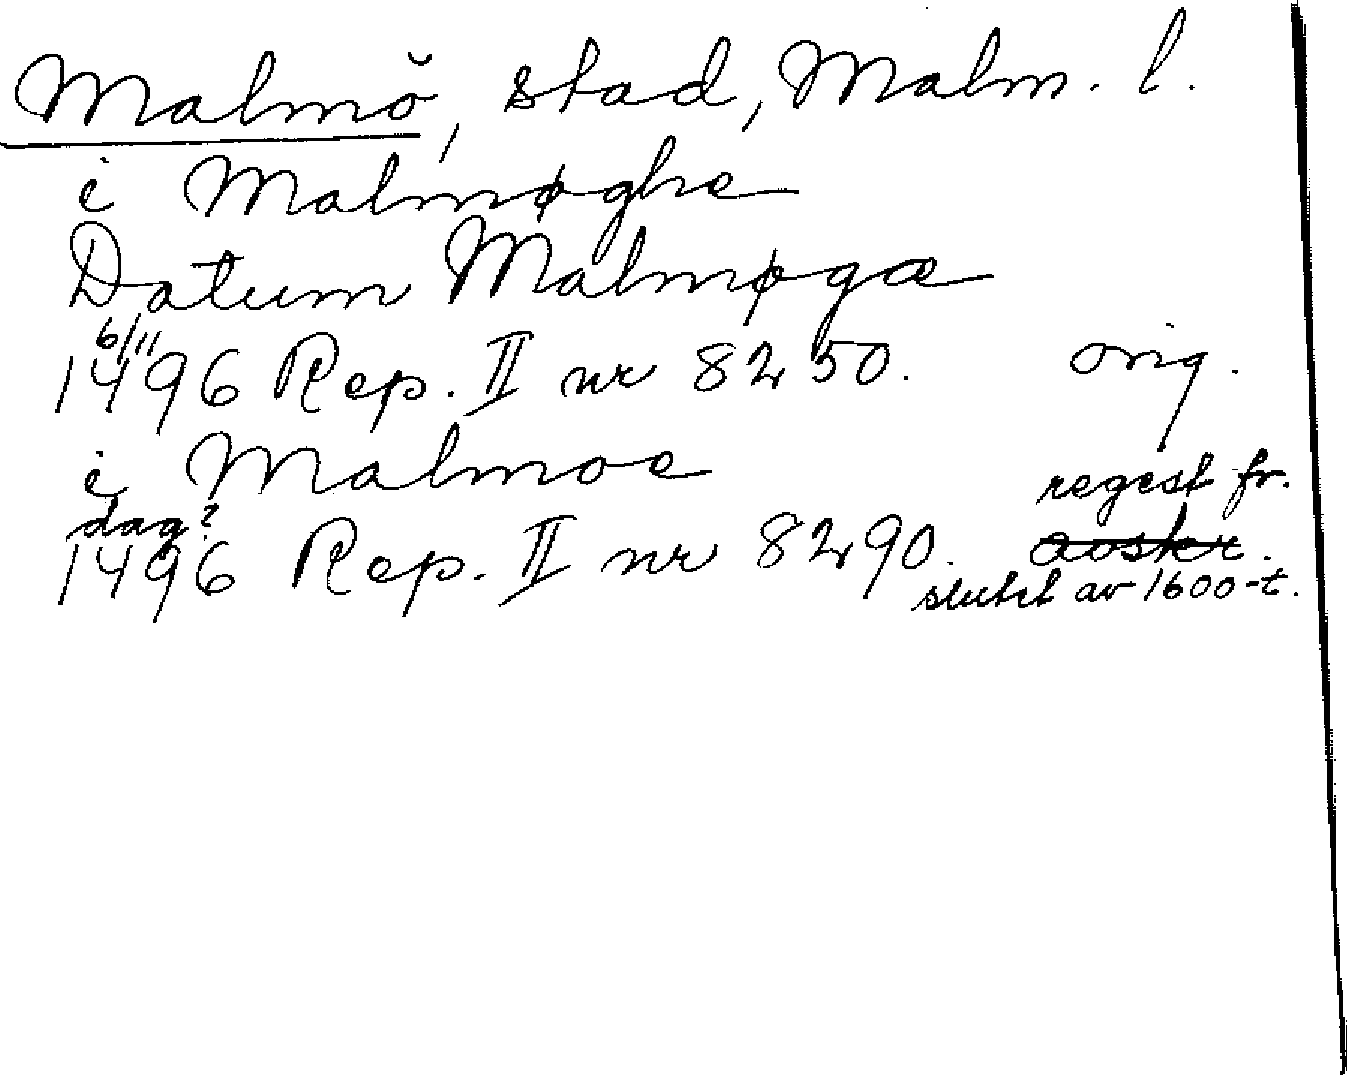 Malmö, stad, Malm. l.
i Malmøghe
Datum Malmøgæ
6/11
1496 Rep. II nr 8250. orig.
i Malmoe
regest fr.
dag?
1496 Rep. II nr 8290. avskr.
slutet av 1600-t.